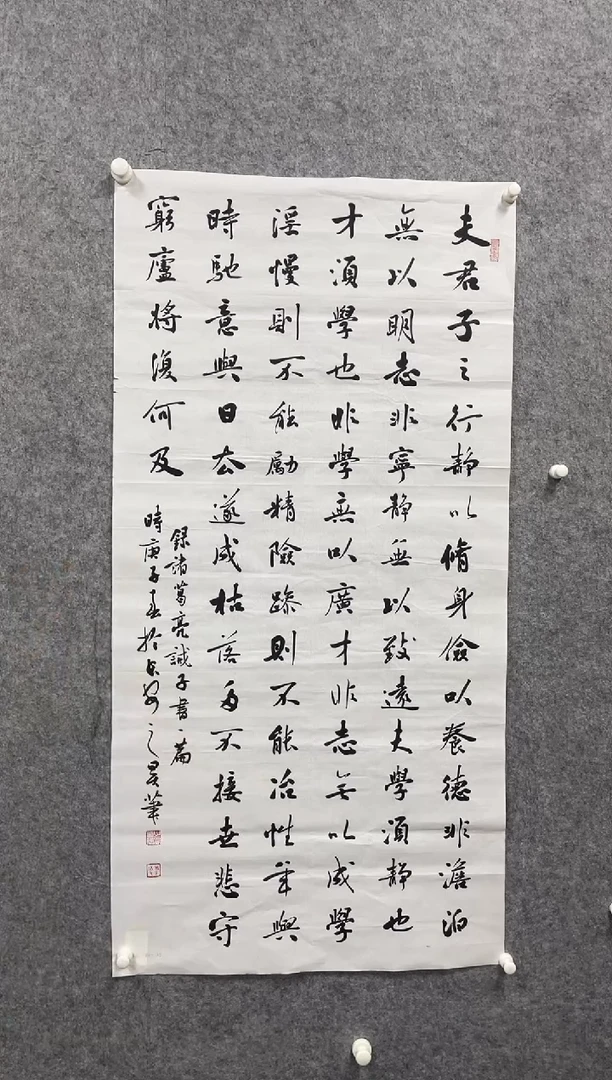 夫君子之行静以脩身儉以養德非澹泊
無以明志非寧静無以致遠夫學須静也
才須學也非學無以廣才非志無以成學
淫慢則不能勵精險躁則不能冶性年與
時馳意與日去遂成枯落多不接世悲守
窮廬將復何及
録諸葛亮誡子書一篇
時庚子春於長安之昊筆